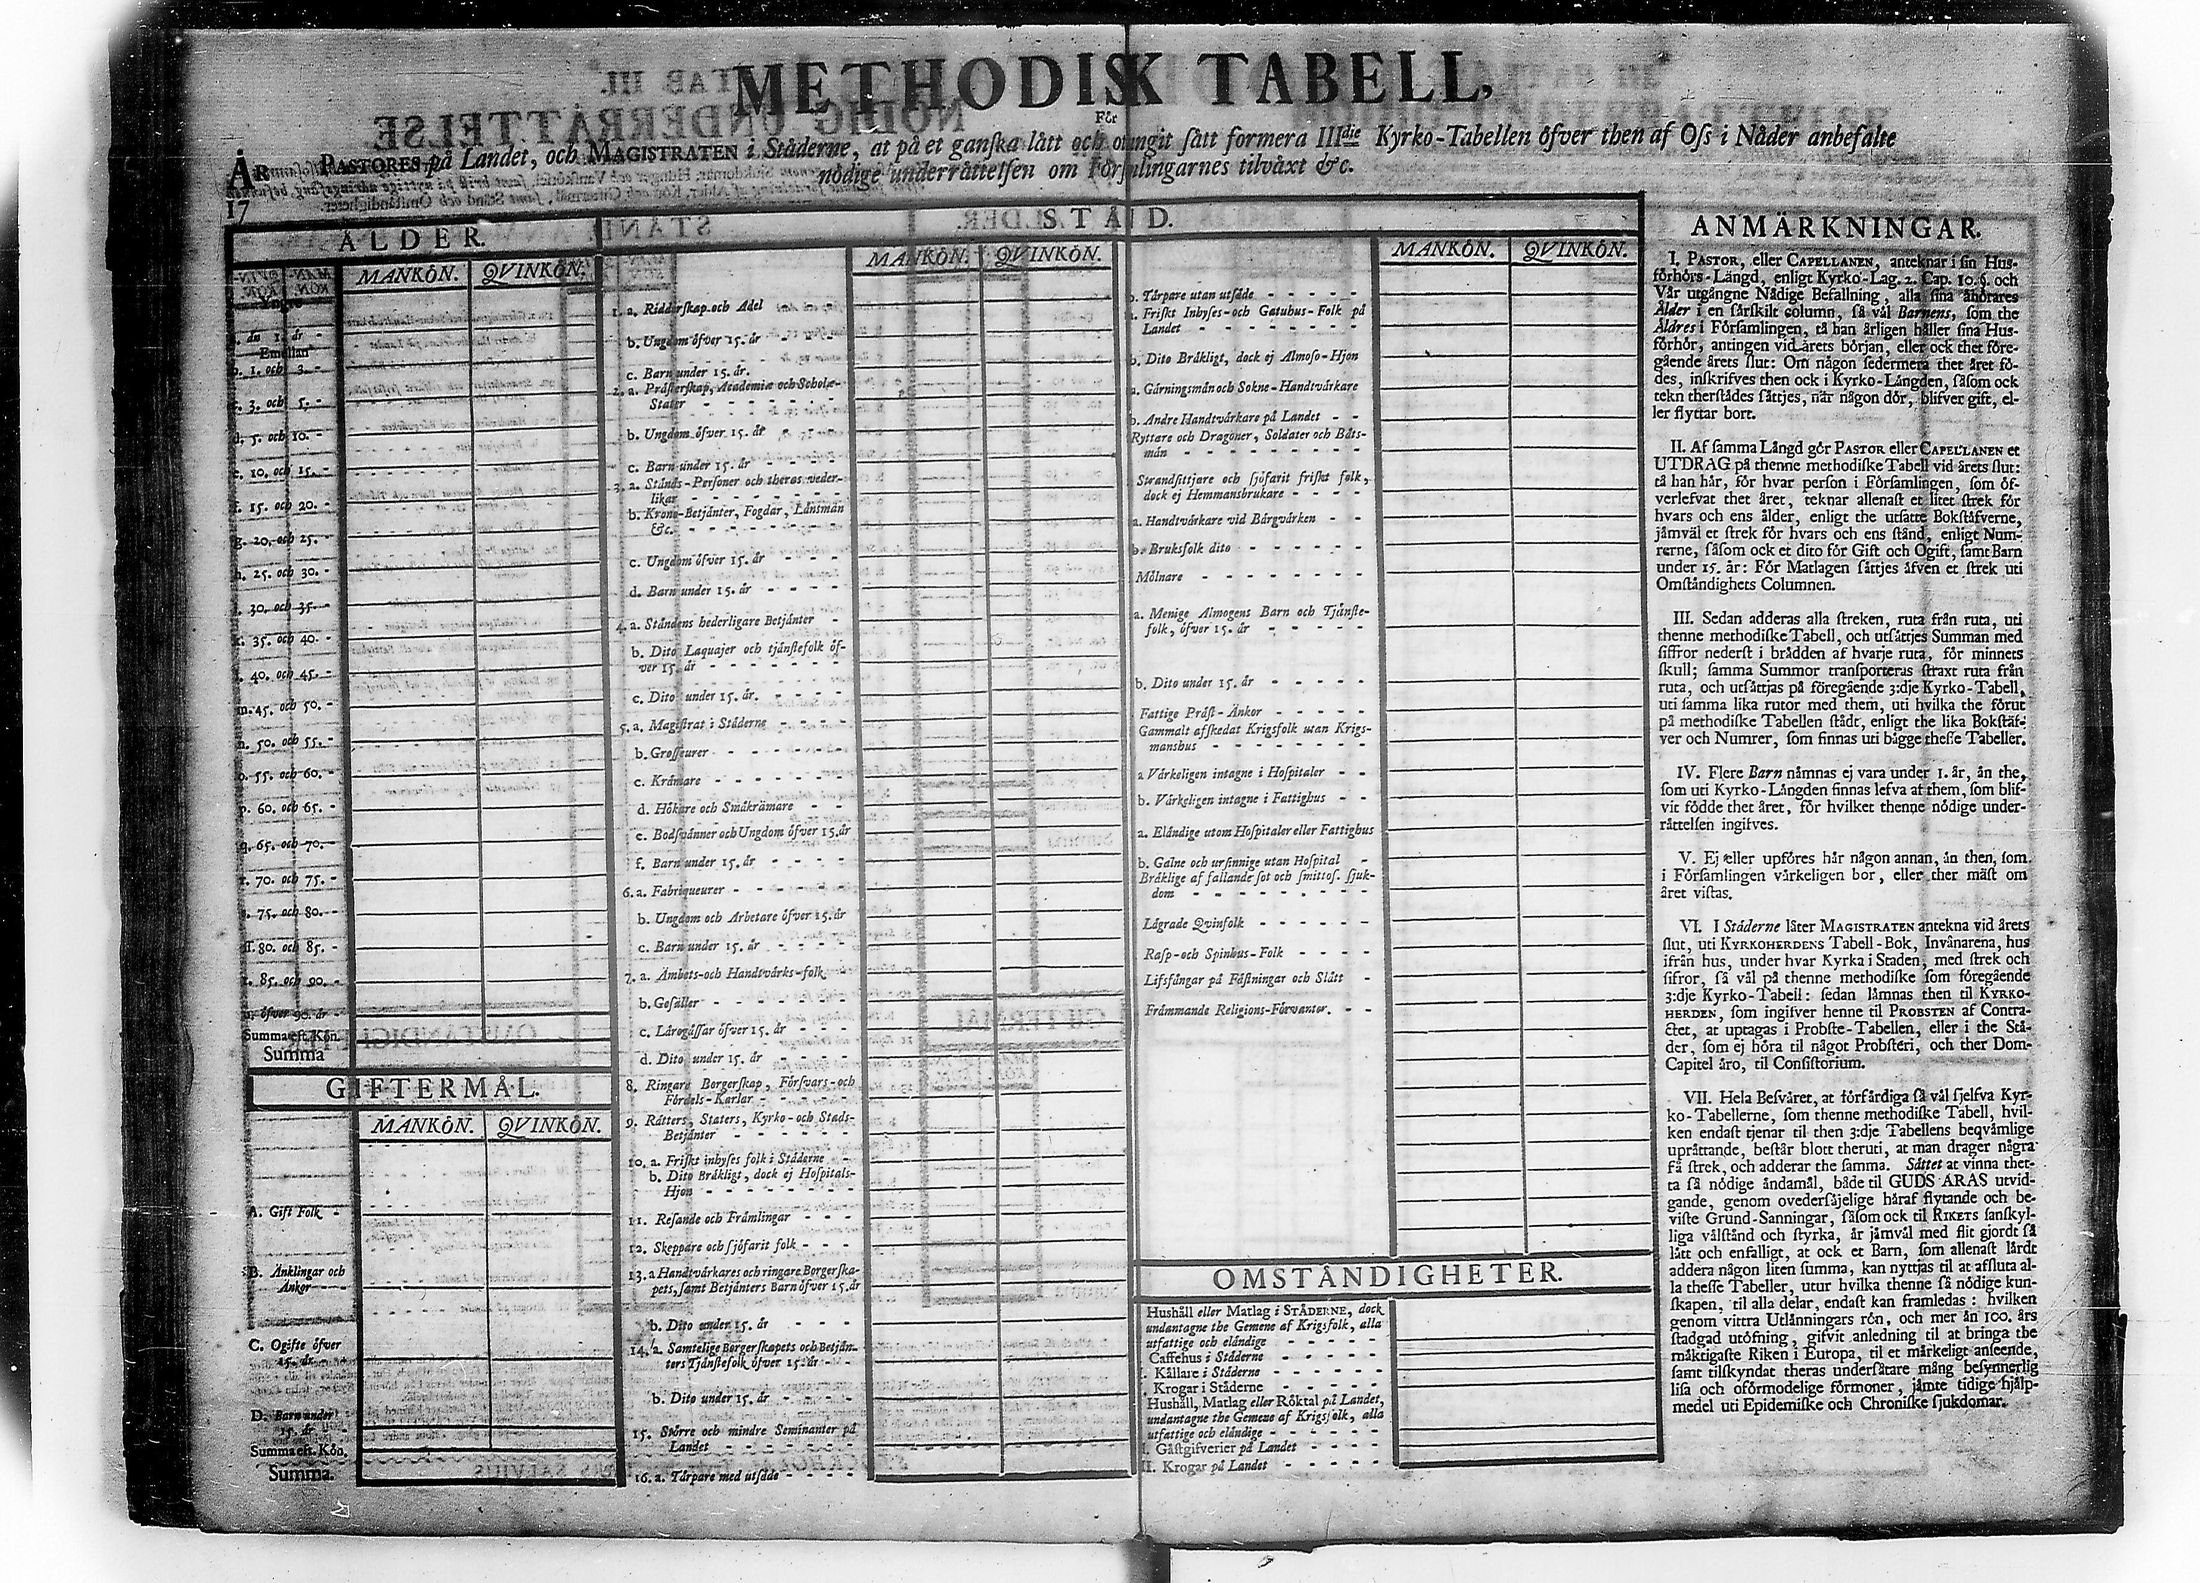 METHODISK TABELL,
För
PASTORES på Landet, och MAGISTRATEN i Ståderne, at på et ganſka lått och otungit ſått formera IIIdie Kyrko-Tabellen öfver then af Oſs i Nåder anbefalte
nödige underråttelſen om Förſamlingarnes tilvåxt &c.
ÅR
17
ÅLDER.
MANKÖN. QVINKÖN.
Yngre
a. ån 1. år -
Emellan
b. 1. och 3. -
c. 3. och 5. -
d. 5. och 10. -
e. 10. och 15. -
f. 15. och 20. -
g. 20. och 25. -
h. 25. och 30. -
i. 30. och 35. -
k. 35. och 40. -
l. 40. och 45. -
m. 45. och 50. -
n. 50. och 55. -
o. 55. och 60. -
p. 60. och 65. -
q. 65. och 70. -
r. 70. och 75. -
s. 75. och 80. -
ſſ. 80. och 85. -
t. 85. och 90. -
u. öfver 90. år -
Summa eft. Kön.
Summa
GIFTERMÅL.
MANKÖN. QVINKÖN.
A. Gift Folk -
B. Ånklingar och
Ånkor - - -
C. Ogifte öfver
15. år - -
D. Barn under
15. år - -
Summa eft. Kön.
Summa.
STÅND.
MANKÖN. QVINKÖN.
1. a. Ridderſkap och Adel
b. Ungdom öfver 15. år - - -
c. Barn under 15. år.
2. a. Pråſterſkap, Academiæ och Scholæ-
Stater - - - - - - -
b. Ungdom öfver 15. år - - - -
c. Barn under 15. år - - - - -
3. a. Stånds-Perſoner och theras veder-
likar - - - - - - - -
b. Krono-Betjånter, Fogdar, Låntsmån
&c. - - - - - - - - -
c. Ungdom öfver 15. år - - - -
d. Barn under 15. år - - - -
4. a. Ståndens hederligare Betjånter -
b. Dito Laquajer och tjånſtefolk öf-
ver 15. år - - - - - - -
c. Dito under 15. år. - - - - -
5. a. Magiſtrat i Ståderne - - - -
b. Groſſeurer - - - - - - -
c. Kråmare - - - - - - -
d. Hökare och Småkråmare - -
e. Bodſvånner och Ungdom öfver 15. år
f. Barn under 15. år - - - -
6. a. Fabriqueurer - - - - - -
b. Ungdom och Arbetare öfver 15. år
c. Barn under 15. år - - - -
7. a. Åmbets- och Handtvårks-folk
b. Geſåller - - - - - - -
c. Lårogåſſar öfver 15. år - - -
d. Dito under 15. år - - - -
8. Ringare Borgerſkap, Förſvars- och
Fördels-Karlar - - - - -
9. Råtters, Staters, Kyrko- och Stads-
Betjånter - - - - - -
10. a. Friſkt inhyſes folk i Ståderne -
b. Dito Bråkligt, dock ej Hoſpitals-
Hjon - - - - - - - -
11. Reſande och Fråmlingar - - -
12. Skeppare och ſjöfarit folk - - -
13. a Handtvårkares och ringare Borgerſka-
pets, ſamt Betjånters Barn öfver 15. år
b. Dito under 15. år - - -
14. a. Samtelige Borgerſkapets och Betjån-
ters Tjånſtefolk öfver 15. år - -
b. Dito under 15. år - - - -
15. Större och mindre Seminanter på
Landet - - - - - - -
16. a. Tårpare med utſåde - - - -
MANKÖN. QVINKÖN.
b. Tårpare utan utſåde - - - - -
a. Friſkt Inhyſes- och Gatuhus-Folk på
Landet - - - - - - - -
b. Dito Bråkligt, dock ej Almoſo-Hjon
a. Gårningsmån och Sokne-Handtvårkare
b. Andre Handtvårkare på Landet - -
Ryttare och Dragoner, Soldater och Båts-
mån - - - - - - - - -
Strandſittjare och ſjöfarit friſkt folk,
dock ej Hemmansbrukare - - - -
a. Handtvårkare vid Bårgvårken - -
b. Bruksfolk dito - - - - - - -
Mölnare - - - - - - - - -
a. Menige Almogens Barn och Tjånſte-
folk, öfver 15. år - - - - -
b. Dito under 15. år - - - - -
Fattige Pråſt-Ånkor - - - - -
Gammalt afſkedat Krigsfolk utan Krigs-
manshus - - - - - - - -
a Vårkeligen intagne i Hoſpitaler - -
b. Vårkeligen intagne i Fattighus - -
a. Elåndige utom Hoſpitaler eller Fattighus
b. Galne och urſinnige utan Hoſpital -
Bråklige af fallande ſot och ſmittoſ. ſjuk-
dom - - - - - - - - -
Lågrade Qvinfolk - - - - - -
Raſp- och Spinhus-Folk - - - - -
Lifsfångar på Fåſtningar och Slått -
Fråmmande Religions-Förvanter. - -
OMSTÅNDIGHETER.
Hushåll eller Matlag i STÅDERNE, dock
undantagne the Gemene af Krigsfolk, alla
utfattige och elåndige - - - - -
Caffehus i Ståderne - - - - -
Kållare i Ståderne - - - - -
Krogar i Ståderne - - - - -
Hushåll, Matlag eller Röktal på Landet,
undantagne the Gemene af Krigsfolk, alla
utfattige och elåndige - - - - -
Gåſtgifverier på Landet - - - -
Krogar på Landet - - - - -
ANMÄRKNINGAR.
I. PASTOR, eller CAPELLANEN, anteknar i ſin Hus-
förhörs-Långd, enligt Kyrko-Lag. 2. Cap. 10. §. och
Vår utgångne Nådige Befallning, alla ſina åhörares
Ålder i en ſårſkilt column, ſå vål Barnens, ſom the
Åldres i Förſamlingen, tå han årligen håller ſina Hus-
förhör, antingen vid årets början, eller ock thet före-
gående årets ſlut: Om någon ſedermera thet året fö-
des, inſkrifves then ock i Kyrko-Långden, ſåſom ock
tekn therſtådes ſåttjes, når någon dör, blifver gift, el-
ler flyttar bort.
II. Af ſamma Långd gör PASTOR eller CAPELLANEN et
UTDRAG på thenne methodiſke Tabell vid årets ſlut:
tå han hår, för hvar perſon i Förſamlingen, ſom öf-
verlefvat thet året, teknar allenaſt et litet ſtrek för
hvars och ens ålder, enligt the utſatte Bokſtåfverne,
jåmvål et ſtrek för hvars och ens ſtånd, enligt Num-
rerne, ſåſom ock et dito för Gift och Ogift, ſamt Barn
under 15. år: För Matlagen ſåttjes åfven et ſtrek uti
Omſtåndighets Columnen.
III. Sedan adderas alla ſtreken, ruta från ruta, uti
thenne methodiſke Tabell, och utſåttjes Summan med
ſiffror nederſt i brådden af hvarje ruta, för minnets
ſkull; ſamma Summor tranſporteras ſtraxt ruta från
ruta, och utſåttjas på föregående 3:dje Kyrko-Tabell,
uti ſamma lika rutor med them, uti hvilka the förut
på methodiſke Tabellen ſtådt, enligt the lika Bokſtåf-
ver och Numrer, ſom finnas uti bågge theſſe Tabeller.
IV. Flere Barn nåmnas ej vara under 1. år, ån the,
ſom uti Kyrko-Långden finnas lefva af them, ſom blif-
vit födde thet året, för hvilket thenne nödige under-
råttelſen ingifves.
V. Ej eller upföres hår någon annan, ån then, ſom
i Förſamlingen vårkeligen bor, eller ther måſt om
året viſtas.
VI. I Ståderne låter MAGISTRATEN antekna vid årets
ſlut, uti KYRKOHERDENS Tabell-Bok, Invånarena, hus
ifrån hus, under hvar Kyrka i Staden, med ſtrek och
ſifror, ſå vål på thenne methodiſke ſom föregående
3:dje Kyrko-Tabell: ſedan låmnas then til KYRKO-
HERDEN, ſom ingifver henne til PROBSTEN af Contra-
ctet, at uptagas i Probſte-Tabellen, eller i the Stå-
der, ſom ej höra til något Probſteri, och ther Dom-
Capitel åro, til Conſiſtorium.
VII. Hela Beſvåret, at förfårdiga ſå vål ſjelfva Kyr-
ko-Tabellerne, ſom thenne methodiſke Tabell, hvil-
ken endaſt tjenar til then 3:dje Tabellens beqvåmlige
upråttande, beſtår blott theruti, at man drager några
få ſtrek, och adderar the ſamma. Såttet at vinna thet-
ta ſå nödige åndamål, både til GUDS ÅRAS utvid-
gande, genom overderſåjelige håraf flytande och be-
viſte Grund-Sanningar, ſåſom ock til RIKETS ſanſkyl-
liga vålſtånd och ſtyrka, år jåmvål med flit gjordt ſå
lått och enfalligt, at ock et Barn, ſom allenaſt lårdt
addera någon liten ſumma, kan nyttjas til at afſluta al-
la theſſe Tabeller, utur hvilka thenne ſå nödige kun-
ſkapen, til alla delar, endaſt kan framledas: hvilken
genom vittra Utlånningars rön, och mer ån 100. års
ſtadgad utöfning, gifvit anledning til at bringa the
måktigaſte Riken i Europa, til et mårkeligt anſeende,
ſamt tilſkyndat theras underſåtare mång beſynnerlig
liſa och oförmodelige förmoner, jåmte tidige hjålp-
medel uti Epidemiſke och Chroniſke ſjukdomar.